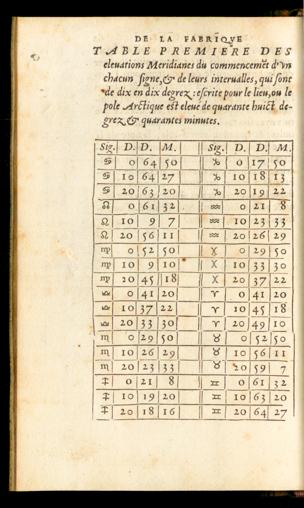 DE LA FABRIQVE
TABLE PREMIERE DES
eleuations Meridianes du commencemẽt d'vn
chacun signe, & de leurs interualles, qui sont
de dix en dix degrez : escrite pour le lieu, ou le
pole Arctique est eleué de quarante huict de-
grez, & quarantes minutes.
Sig. D. D. M. Sig. D. D. M.
♋ 0 64 50 ♑ 0 17 50
♋ 10 64 27 ♑ 10 18 13
♋ 20 63 20 ♑ 20 19 22
♌ 0 61 32 ♒ 0 21 8
♌ 10 9 7 ♒ 10 23 33
♌ 20 56 11 ♒ 20 26 29
♍ 0 52 50 ♓ 0 29 50
♍ 10 9 10 ♓ 10 33 30
♍ 20 45 18 ♓ 20 37 22
♎ 0 41 20 ♈ 0 41 20
♎ 10 37 22 ♈ 10 45 18
♎ 20 33 30 ♈ 20 49 10
♏ 0 29 50 ♉ 0 52 50
♏ 10 26 29 ♉ 10 56 11
♏ 20 23 33 ♉ 20 59 7
♐ 0 21 8 ♊ 0 61 32
♐ 10 19 20 ♊ 10 63 20
♐ 20 18 16 ♊ 20 64 27